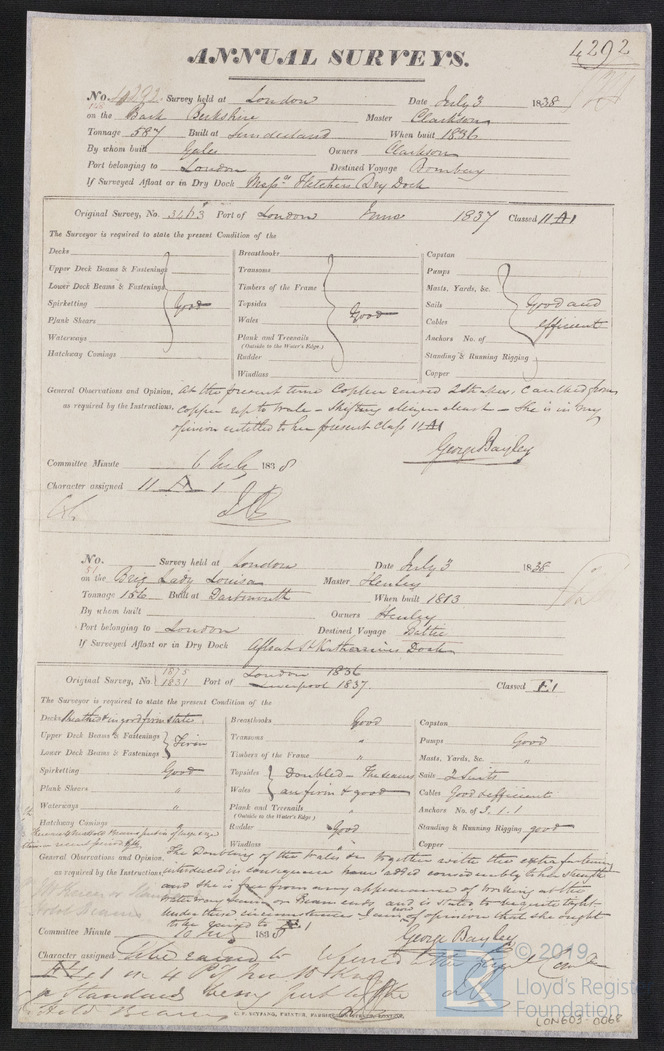 4292
ANNUAL SURVEYS.
No. 4292. Survey held at London Date July 3 1838
on the Bark Berkshire Master Clarkson
Tonnage 587 Built at Sunderland When built 1836
By whom built Gales Owners Clarkson
Port belonging to London Destined Voyage Bombay
If Surveyed Afloat or in Dry Dock Messrs Fletchers Dry Dock
Original Survey, No. 3413 Port of London June 1837 Classed 11 A 1
The Surveyor is required to state the present Condition of the
Decks
Upper Deck Beams & Fastenings
Lower Deck Beams & Fastenings
Spirketting Good
Plank Shears
Waterways
Hatchway Comings
Breasthooks
Transoms
Timbers of the Frame
Topsides
Wales Good
Plank and Treenails
(Outside to the Water's Edge)
Rudder
Windlass
Capstan
Pumps
Masts, Yards, &c.
Sails Good and
Cables efficient
Anchors No. of
Standing & Running Rigging
Copper
General Observations and Opinion, At the present time Copper raised 2 Strakes, Caulked from
as required by the Instructions, Copper up to Wale - Shifting Mizen Mast - She is in my
opinion entitled to her present Class 11 A1
George Bayley
Committee Minute 6 July 1838
Character assigned 11 A 1
No. Survey held at London Date July 3 1838
51
on the Brig Lady Louisa Master Henley
Tonnage 156 Built at Dartmouth When built 1813
By whom built Owners Henley
Port belonging to London Destined Voyage
If Surveyed Afloat or in Dry Dock Afloat St Katharines Dock
Original Survey, No. 1875 Port of London 1836
1831 Liverpool 1837. Classed E 1
The Surveyor is required to state the present Condition of the
Decks Sheathed & in good firm state
Upper Deck Beams & Fastenings Firm
Lower Deck Beams & Fastenings
Spirketting Good
Plank Shears "
Waterways "
Hatchway Comings
Breasthooks Good
Transoms "
Timbers of the Frame "
Topsides Doubled - The seams
Wales are firm & good
Plank and Treenails "
(Outside to the Water's Edge)
Rudder Good
Windlass "
Capstan
Pumps Good
Masts, Yards, &c. "
Sails 2 Suits
Cables Good & efficient
Anchors No. of 3.1.1
Standing & Running Rigging good
Copper
General Observations and Opinion, The Doubling of the Wales &c together with the extra fastening
as required by the Instructions, introduced in consequence have added considerably to her strength
and she is free from any appearance of working at the
waterway seams or Beam ends and is stated to be quite tight
Under these circumstances I am now of opinion that she ought
to be raised to 1
Committee Minute 10 July 1838
George Bayley
Character assigned referred to the
Standard being put to the
Hold Beams
© 2019
Lloyd's Register
Foundation
LON603-0068